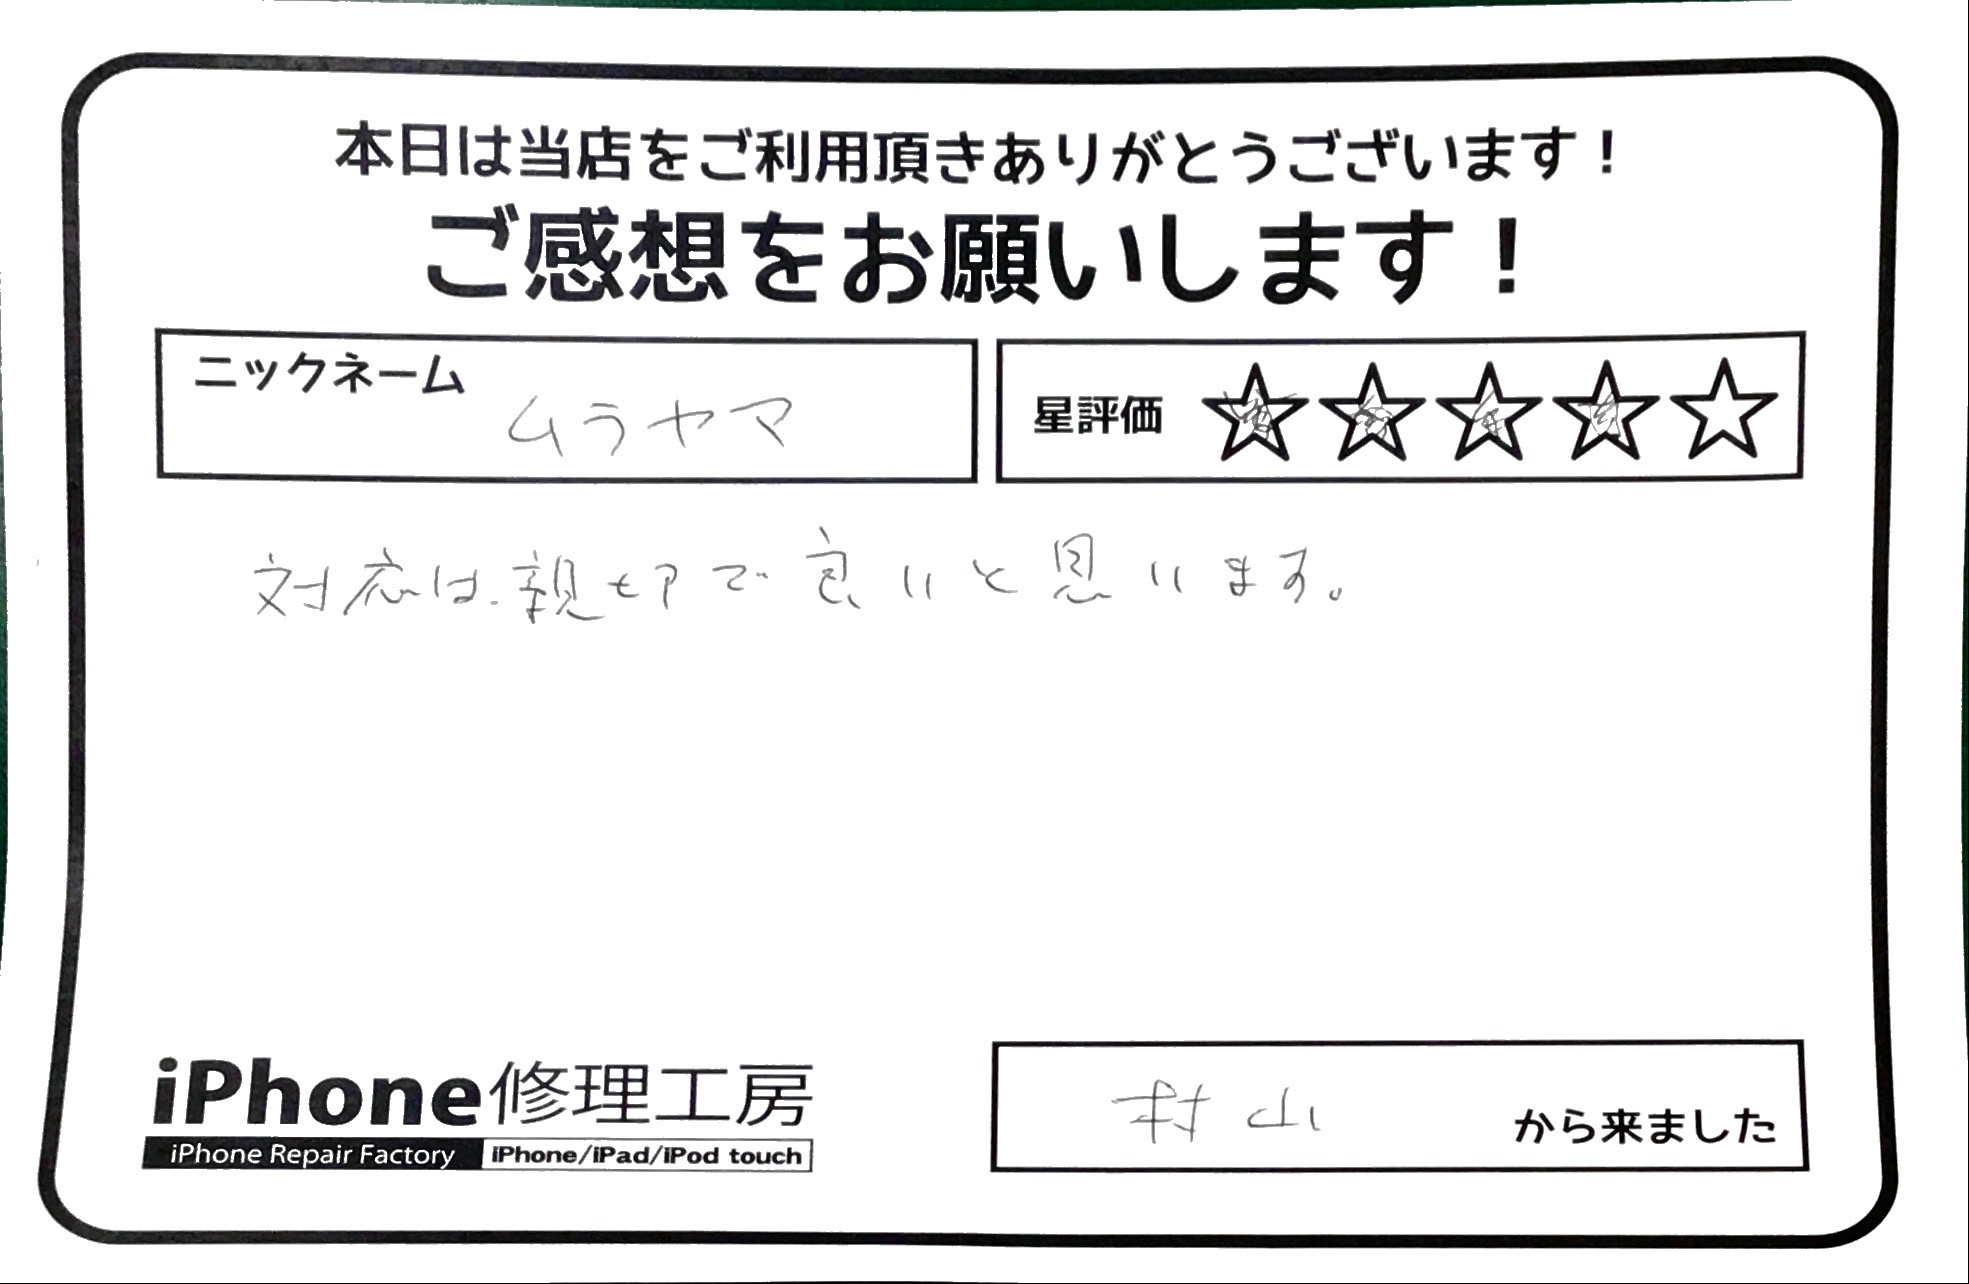 本日は当店をご利用頂きありがとうございます！
ご感想をお願いします！
ニックネーム ムラヤマ
星評価
対応は、親切で良いと思います。
iPhone修理工房
iPhone Repair Factory iPhone/iPad/iPod touch
村山 から来ました